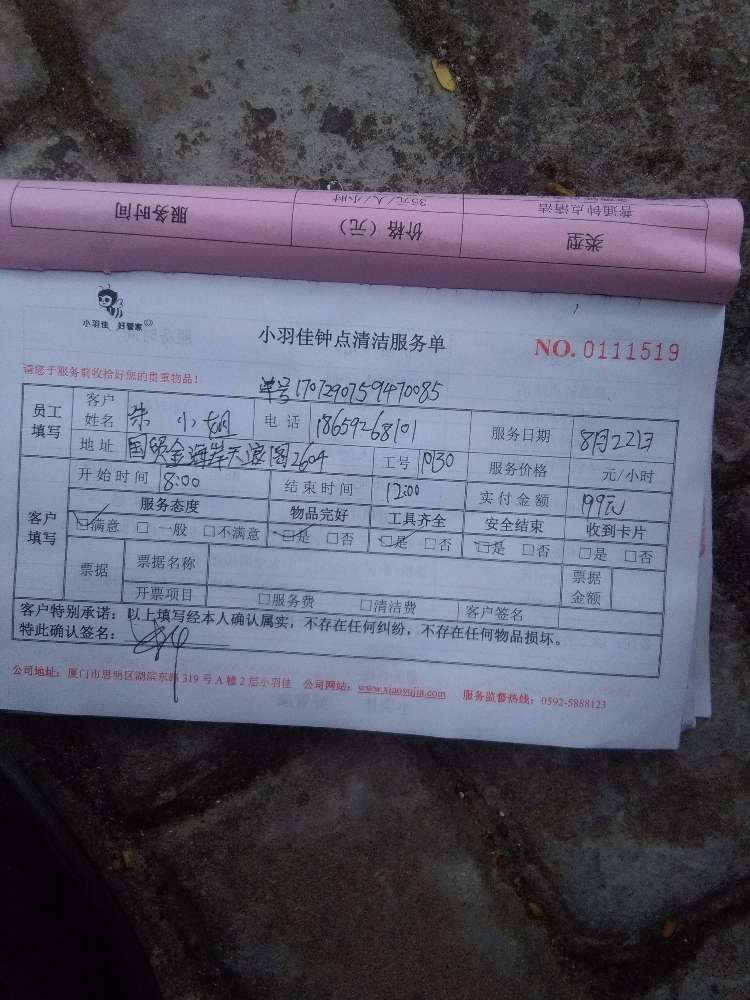 服务时间 价格（元） 类型
35元/人/小时 普通钟点清洁
小羽佳 好管家
小羽佳钟点清洁服务单
NO. 0111519
请您于服务前收拾好您的贵重物品！
单号1707290759470085
员工填写 客户姓名 朱小姐 电话 18659268101 服务日期 8月22日
地址 国贸金海岸天濠阁2604 工号 1030 服务价格 元/小时
客户填写 开始时间 8:00 结束时间 12:00 实付金额 199元
服务态度 物品完好 工具齐全 安全结束 收到卡片
□满意 □一般 □不满意 □是 □否 □是 □否 □是 □否 □是 □否
票据 票据名称 票据金额
开票项目 □服务费 □清洁费 客户签名
客户特别承诺：以上填写经本人确认属实，不存在任何纠纷，不存在任何物品损坏。
特此确认签名：
公司地址：厦门市思明区湖滨东路319号A幢2层小羽佳 公司网站：www.xiaoyujia.com 服务监督热线：0592-5888123